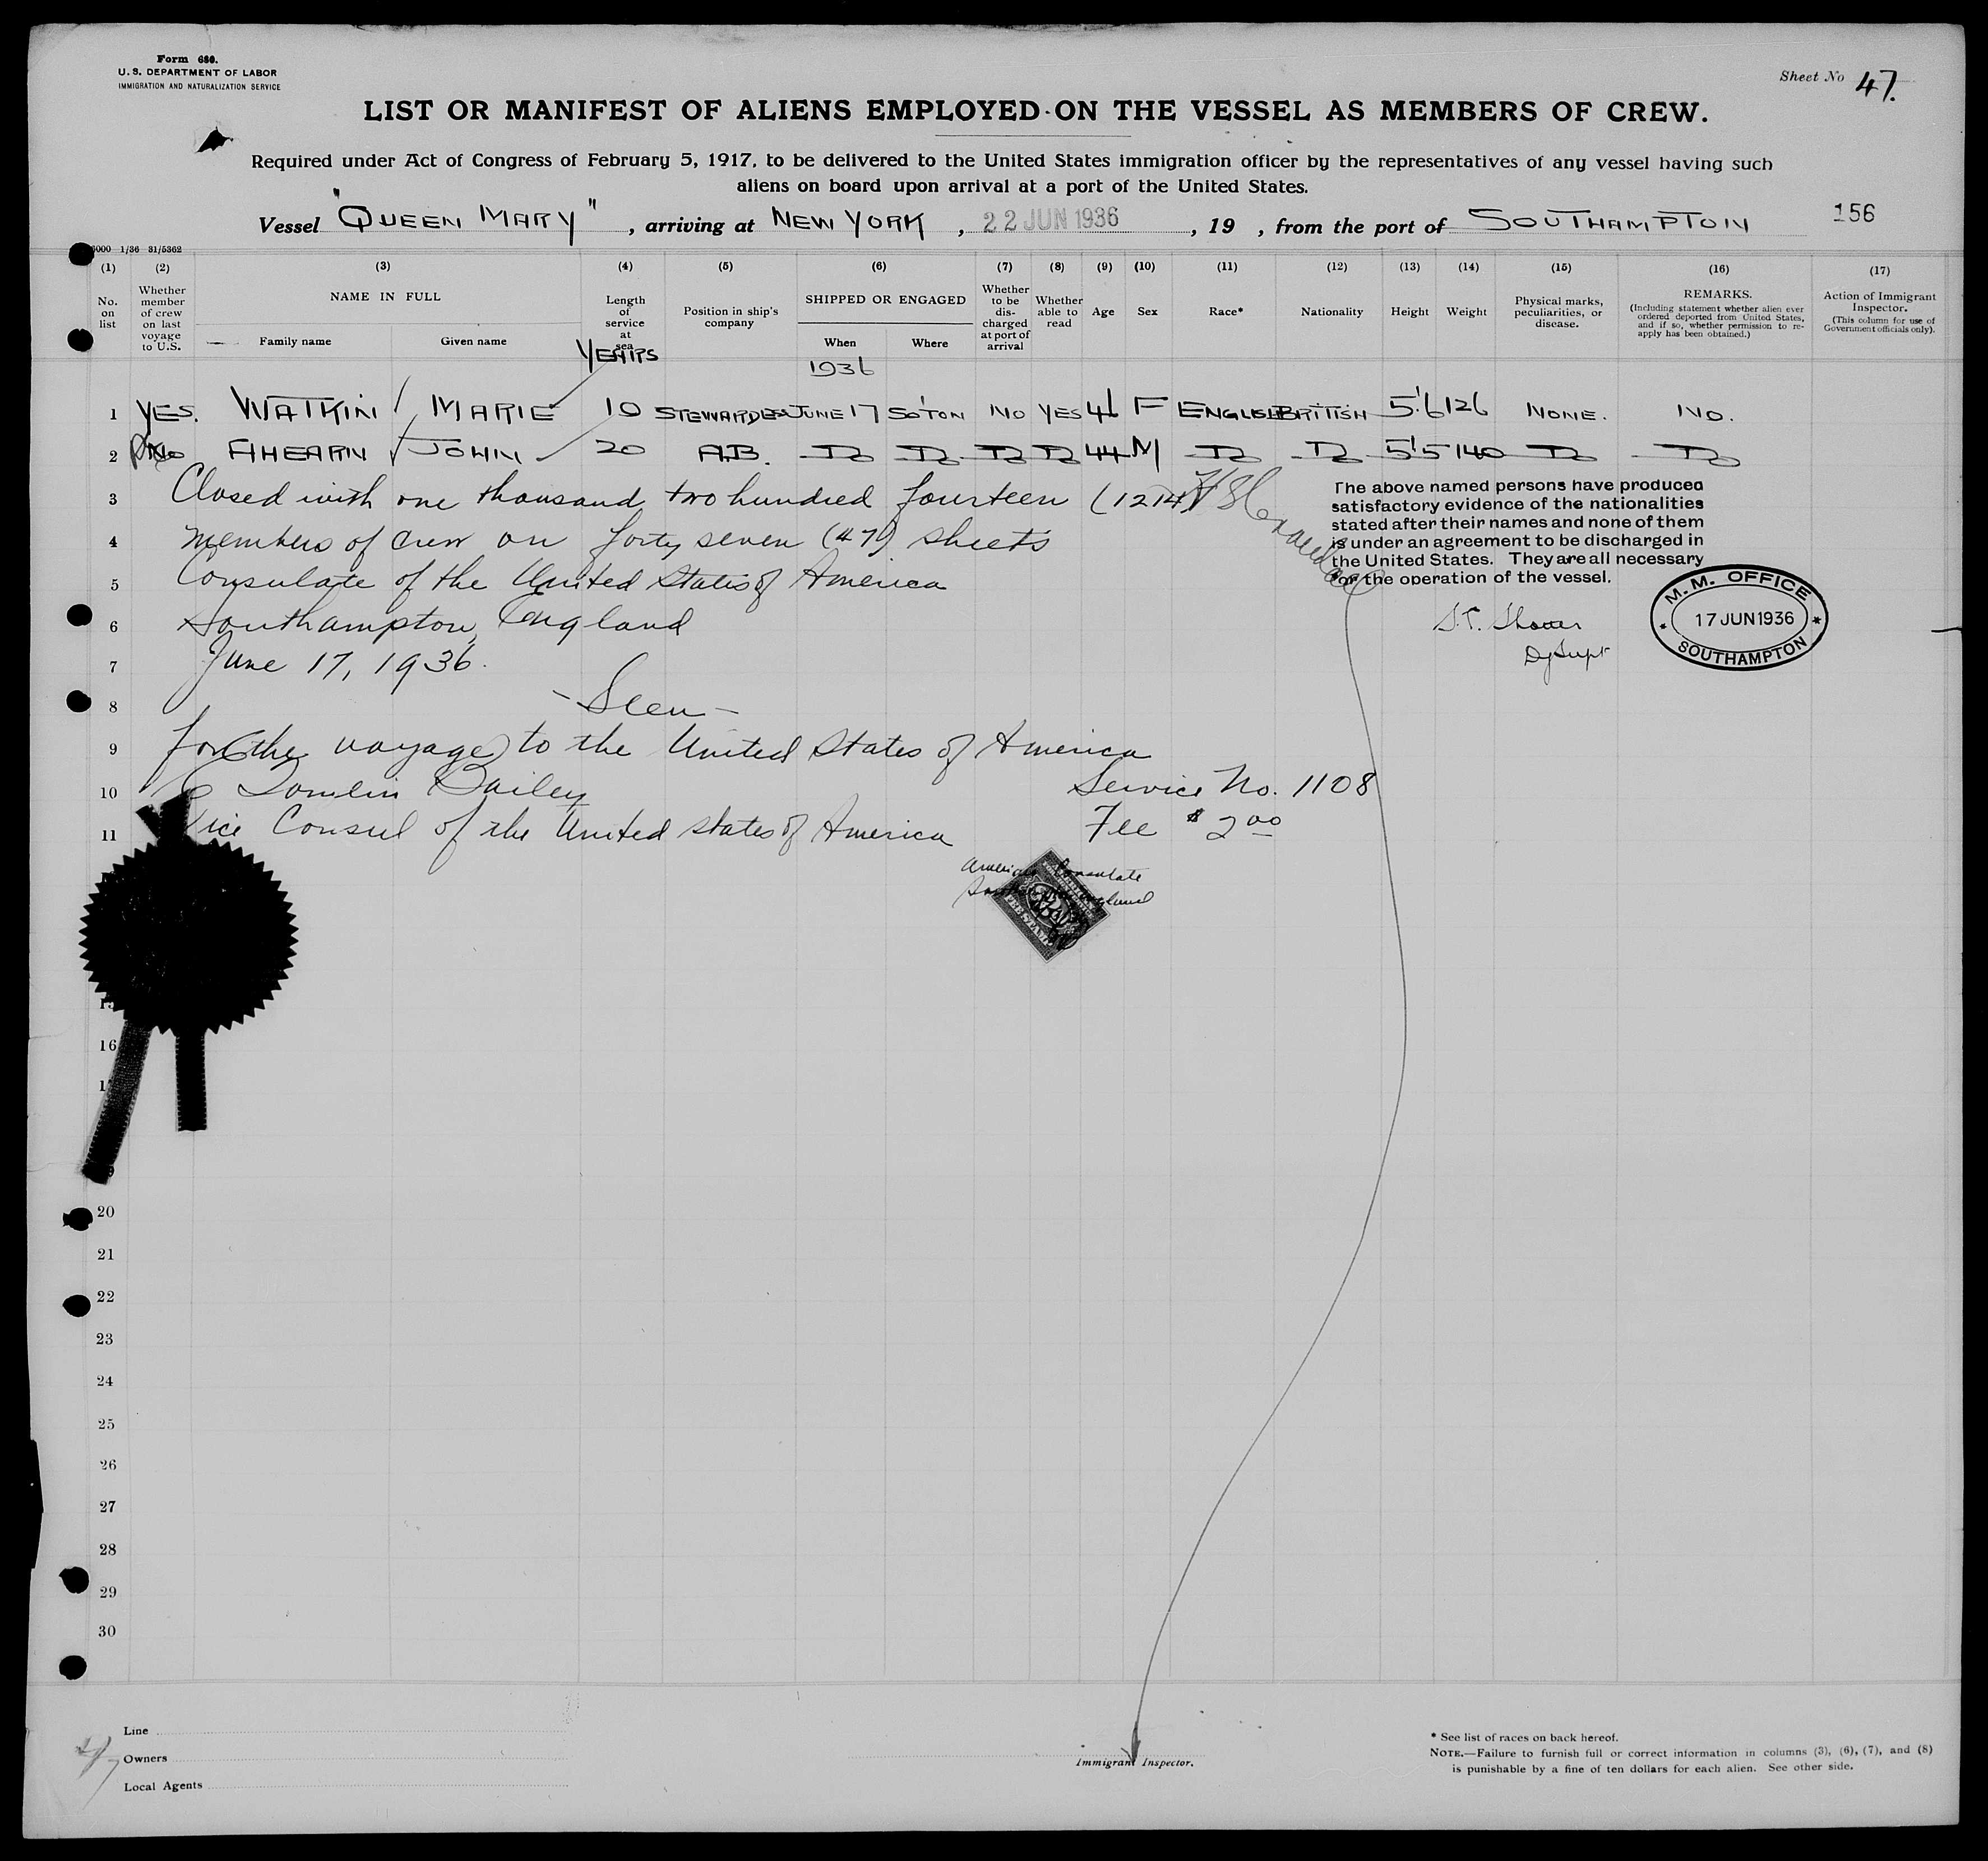 Form 680.
U. S. DEPARTMENT OF LABOR
IMMIGRATION AND NATURALIZATION SERVICE
Sheet No 47.
LIST OR MANIFEST OF ALIENS EMPLOYED ON THE VESSEL AS MEMBERS OF CREW.
Required under Act of Congress of February 5, 1917, to be delivered to the United States immigration officer by the representatives of any vessel having such
aliens on board upon arrival at a port of the United States.
Vessel "QUEEN MARY", arriving at NEW YORK, 22 JUN 1936, 19 , from the port of SOUTHAMPTON
156
1/36 31/5362
(1) (2) (3) (4) (5) (6) (7) (8) (9) (10) (11) (12) (13) (14) (15) (16) (17)
No. on list
Whether member of crew on last voyage to U.S.
NAME IN FULL
Family name
Given name
Length of service at sea
YEARS
Position in ship's company
SHIPPED OR ENGAGED
When
Where
1936
Whether to be discharged at port of arrival
Whether able to read
Age
Sex
Race*
Nationality
Height
Weight
Physical marks, peculiarities, or disease.
REMARKS.
(Including statement whether alien ever ordered deported from United States, and if so, whether permission to re-apply has been obtained.)
Action of Immigrant Inspector.
(This column for use of Government officials only).
1 YES. WATKIN MARIE 10 STEWARDESS JUNE 17 SO'TON NO YES 41 F ENGLISH BRITISH 5'6 126 NONE. NO.
2 No AHEARN JOHN 20 A.B. Do Do Do Do 44 M Do Do 5'5 140 Do Do
3 Closed with one thousand two hundred fourteen (1214)
4 members of crew on forty seven (47) sheets
5 Consulate of the United States of America
6 Southampton, England
7 June 17, 1936.
8 - Seen -
9 for the voyage to the United States of America
10 Tomlin Bailey Service No. 1108
11 Vice Consul of the United States of America Fee $2.00
The above named persons have produced
satisfactory evidence of the nationalities
stated after their names and none of them
is under an agreement to be discharged in
the United States. They are all necessary
for the operation of the vessel.
Dy Supt
M. M. OFFICE
17 JUN 1936
SOUTHAMPTON
American Consulate
England
FEE STAMP
16
20
21
22
23
24
25
26
27
28
29
30
Line
Owners
Local Agents
47
Immigrant Inspector.
* See list of races on back hereof.
NOTE.—Failure to furnish full or correct information in columns (3), (6), (7), and (8)
is punishable by a fine of ten dollars for each alien. See other side.